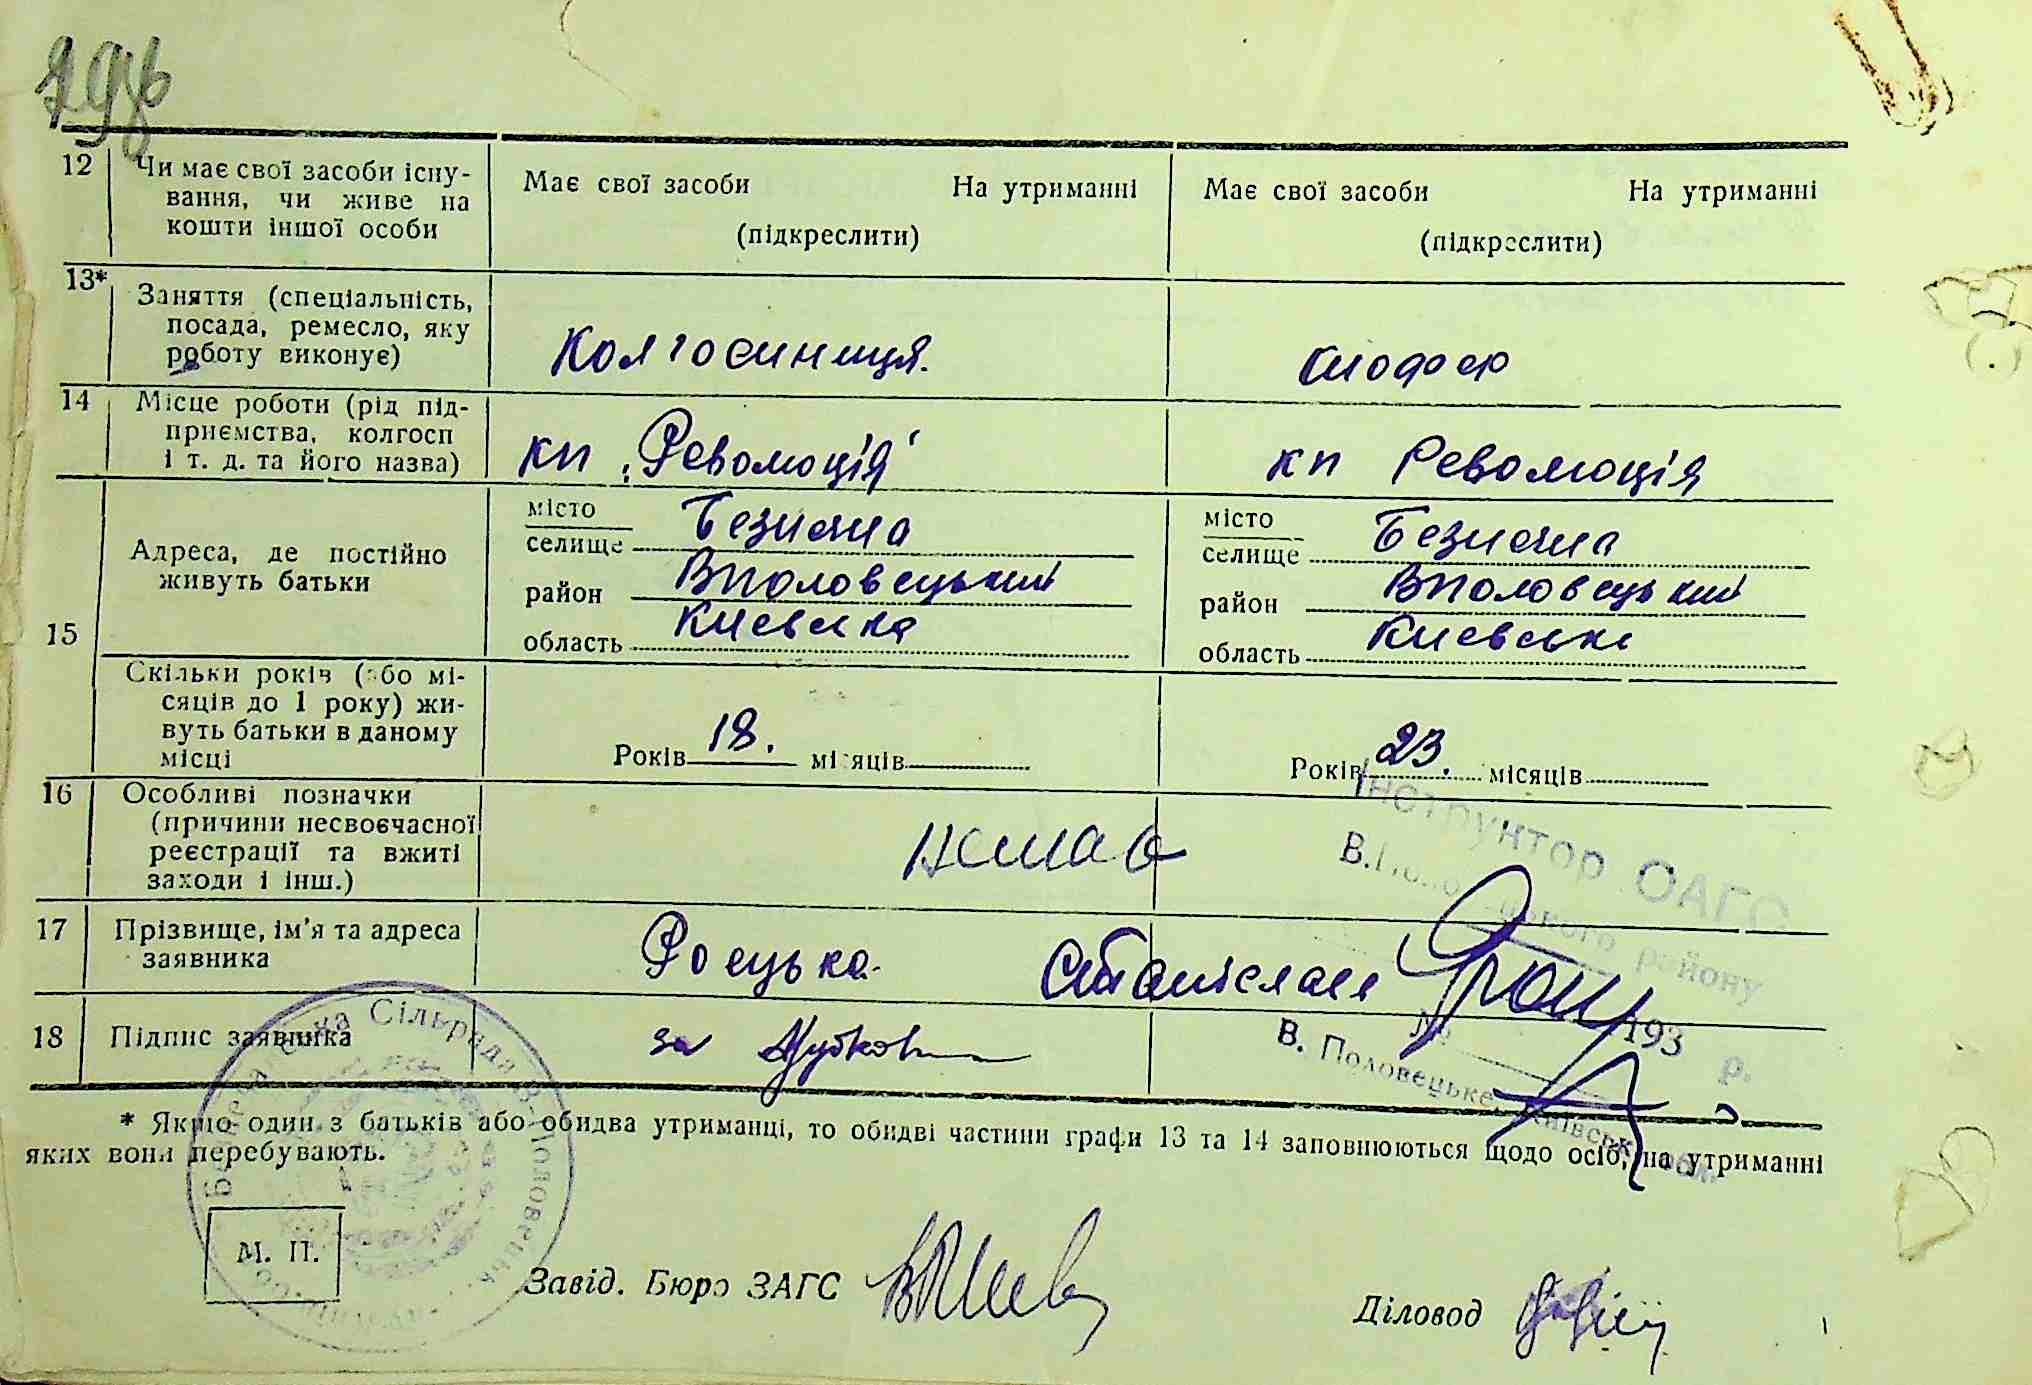 12 Чи має свої засоби існу-
вання, чи живе на
кошти іншої особи
Має свої засоби На утриманні
(підкреслити)
Має свої засоби На утриманні
(підкреслити)
13* Заняття (спеціальність,
посада, ремесло, яку
роботу виконує)
Колгоспниця.
шофер
14 Місце роботи (рід під-
приємства, колгосп
і т. д. та його назва)
кп „Революція"
кп Революція
15
Адреса, де постійно
живуть батьки
місто
селище Безпечна
район Вполовецький
область Киевська
місто
селище Безпечна
район Вполовецький
область Киевська
Скільки років (або мі-
сяців до 1 року) жи-
вуть батьки в даному
місці
Років 18. місяців
Років 23. місяців
16 Особливі позначки
(причини несвоєчасної
реєстрації та вжиті
заходи і інш.)
немає
Інструктор ОАГС
району
17 Прізвище, ім'я та адреса
заявника
Роецька
193 р.
В. Половецьке, Київськ. обл.
18 Підпис заявника
за
* Якщо один з батьків або обидва утриманці, то обидві частини графи 13 та 14 заповнюються щодо осіб, на утриманні
яких вони перебувають.
Сільрада
М. П.
Завід. Бюро ЗАГС
Діловод